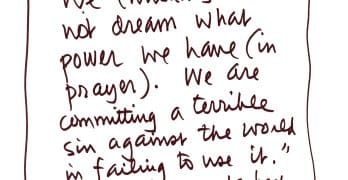 We
not dream what
power we have (in
prayer). We are
committing a terrible
sin against the world
in failing to use it."